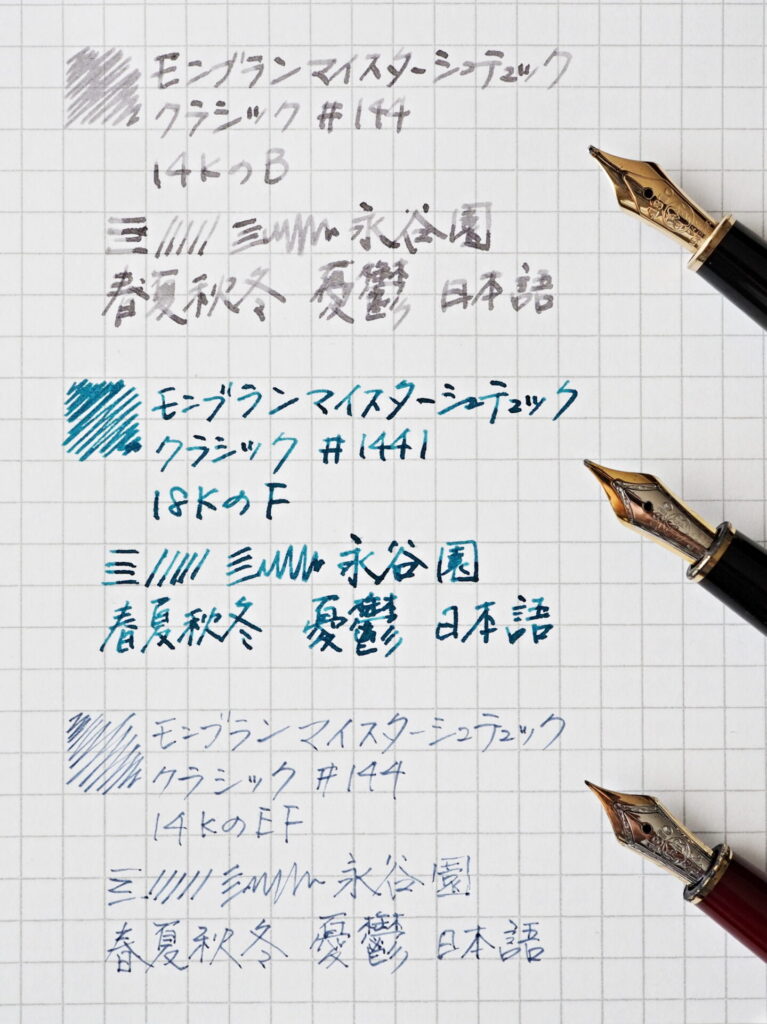 モンブランマイスターシュテュック
クラシック #144
14KのB
三 ///// 三 永谷園
春夏秋冬 憂鬱 日本語
モンブランマイスターシュテュック
クラシック #1441
18KのF
三 ///// 三 永谷園
春夏秋冬 憂鬱 日本語
モンブランマイスターシュテュック
クラシック #144
14KのEF
三 ///// 三 永谷園
春夏秋冬 憂鬱 日本語